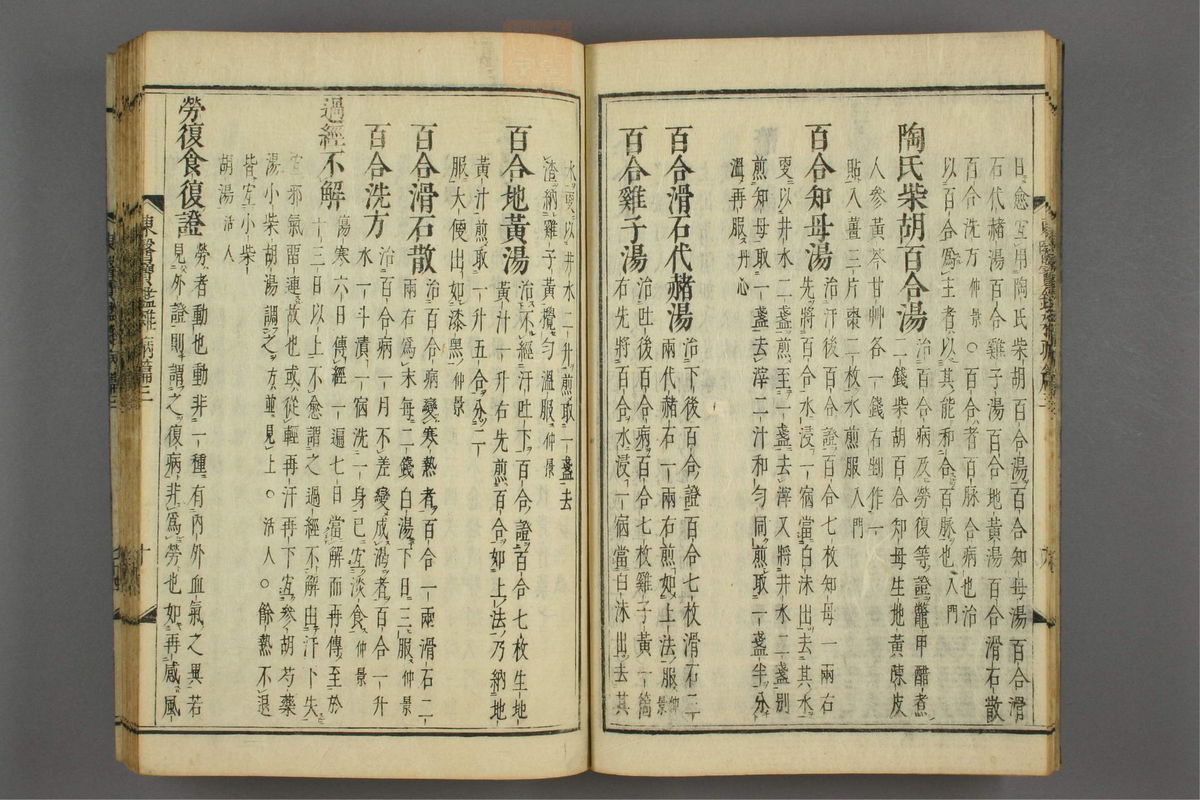 日愈宜用陶氏柴胡百合湯百合知母湯百合滑
石代赭湯百合雞子湯百合地黃湯百合滑石散
百合洗方仲景○百合者百脉合病也治
以百合爲主者以其能和合百脉也入門
陶氏柴胡百合湯治百合病及勞復等證鼈甲醋煮
二錢柴胡百合知母生地黃陳皮
人參黃芩甘艸各一錢右剉作一
貼入薑三片棗二枚水煎服入門
百合知母湯治汗後百合證百合七枚知母一兩右
先將百合水浸一宿當白沫出去其水
更以井水二盞煎至一盞去滓又將井水二盞別
煎知母取一盞去滓二汁和勻同煎取一盞半分
溫再服丹心
百合滑石代赭湯治下後百合證百合七枚滑石二
兩代赭石一兩右煎如上法服仲景
百合雞子湯治吐後百合病百合七枚雞子黃一箇
右先將百合水浸一宿當白沫出去其
水更以井水二升煎取一盞去
渣納雞子黃攪勻溫服仲景
百合地黃湯治不經汗吐下百合證百合七枚生地
黃汁一升右先煎百合如上法乃納地
黃汁煎取一升五合分二
服大便出如漆黑仲景
百合滑石散治百合病變寒熱者百合一兩滑石二
兩右爲末每二錢白湯下日三服仲景
百合洗方治百合病一月不差變成渴者百合一升
水一斗漬一宿洗一身已宜淡食仲景
過經不解傷寒六日傳經一遍七日當解而再傳至於
十三日以上不愈謂之過經不解由汗下失
宜邪氣留連故也或從輕再汗再下宜參胡芍藥
湯小柴胡湯調之方並見上○活人○餘熱不退
皆宜小柴
胡湯活人
勞復食復證勞者動也動非一種有內外血氣之異若
見外證則謂之復病非爲勞也如再感風
東醫寶鑑雜病篇三
十